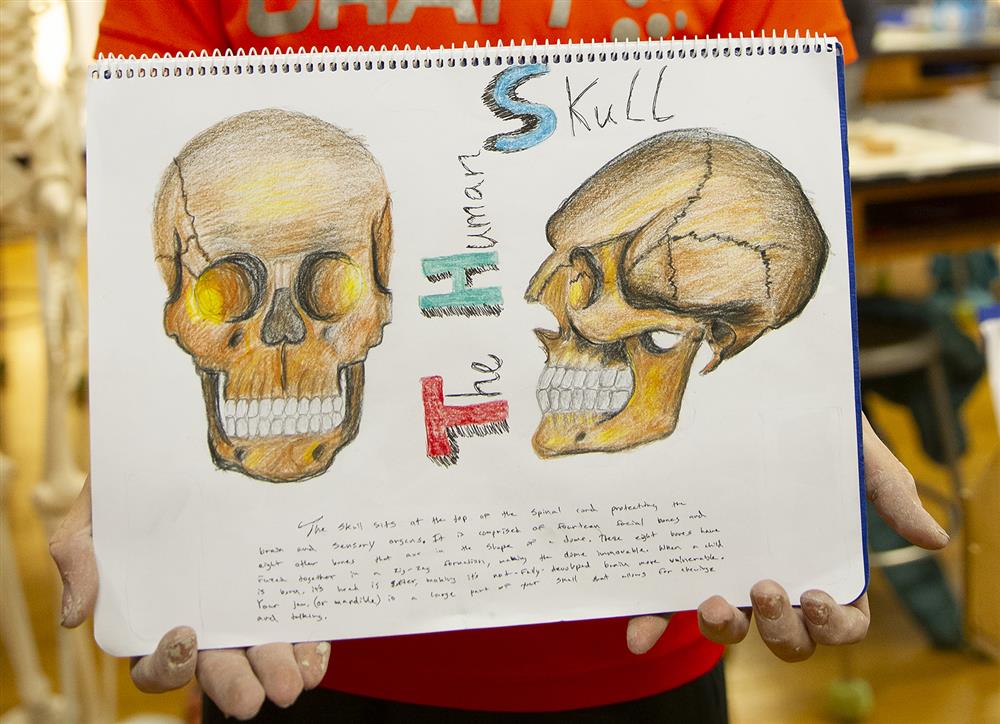 DRAFT
The Human Skull
The skull sits at the top of the spinal cord protecting the
brain and sensory organs. It is comprised of fourteen facial bones and
eight other bones that are in the shape of a dome. These eight bones have
fused together in a zig-zag formation, making the dome immovable. When a child
is born, it's head is softer, making it's not-fully-developed brain more vulnerable.
Your jaw (or mandible) is a large part of your skull that allows for chewing
and talking.